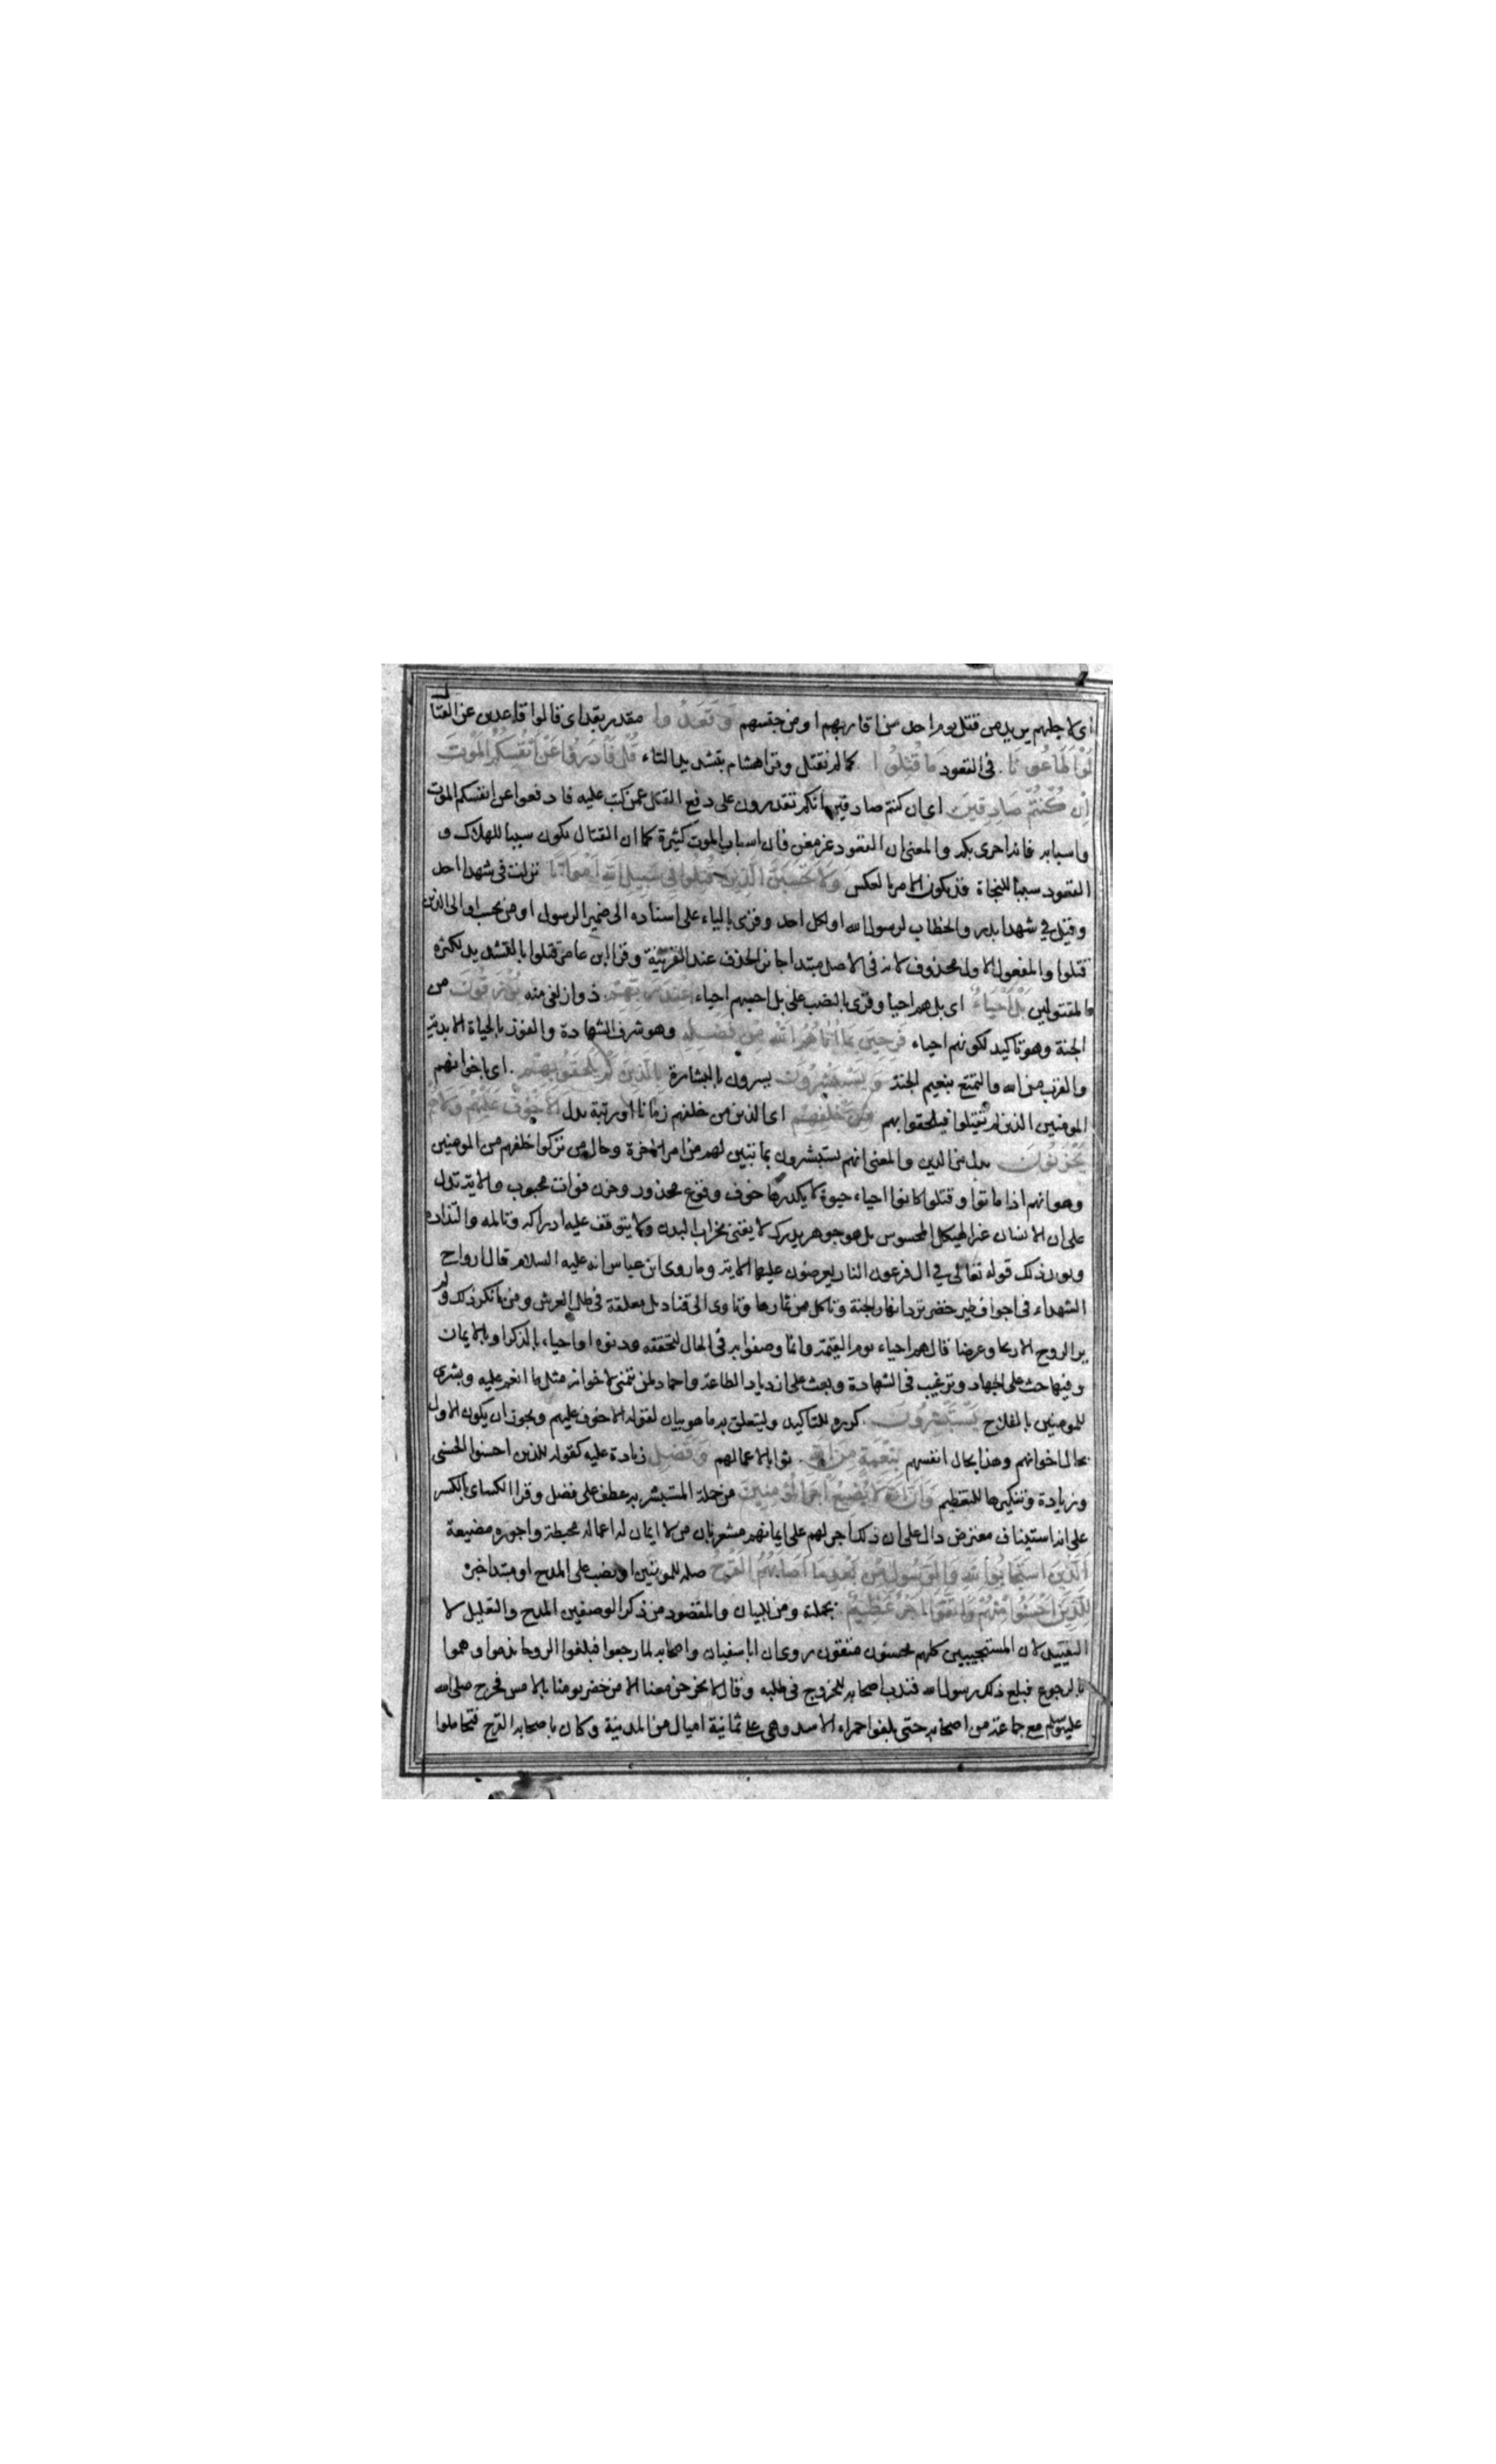 اى لاجلهم يريد من قتل يوم احد من اقاربهم او من جنسهم وقعدوا مقدر بقد اى قالوا قاعدين عن القتال
لو اطاعونا فى القعود ما قتلوا كما لم نقتل وقرا هشام بتشديد التاء قل فادرؤا عن انفسكم الموت
ان كُنتُم صَادِقين اى ان كنتم صادقين انكم تقدرون على دفع القتل عمن كتب عليه فادفعوا عن انفسكم الموت
واسبابه فانه احرى بكم والمعنى ان القعود غير مغن فان اسباب الموت كثيرة كما ان القتال يكون سببا للهلاك و
القعود سببا للنجاة قد يكون الامر بالعكس ولا تحسبن الذين قتلوا فى سبيل الله امواتا نزلت فى شهدا احد
وقيل في شهدا بدر والخطاب لرسول الله او لكل احد وقرى بالياء على اسناده الى ضمير الرسول او من يحسب او الى الذين
قتلوا والمفعول الاول محذوف لانه فى الاصل مبتدا جائز الحذف عند القرينة وقرا ابن عامر قتلوا بالتشديد لكثرة
المقتولين بل احياء اى بل هم احيا وقرى بالنصب على بل احسبهم احياء عند ربهم ذوا زلفى منه يرزقون من
الجنة وهو تاكيد لكونهم احياء فرحين بما اتاهم الله من فضله وهو شرف الشهادة والفوز بالحياة الابدية
والقرب من الله والتمتع بنعيم الجنة ويستبشرون يسرون بالبشارة بالذين لم يلحقوا بهم اى باخوانهم
المومنين الذين لم يقتلوا فيلحقوا بهم من خلفهم اى الذين من خلفهم زمانا او رتبة بدل الا خوف عليهم ولا هم
يحزنون بدل من الذين والمعنى انهم يستبشرون بما تبين لهم من امر الاخرة وحال من تركوا خلفهم من المومنين
وهو انهم اذا ماتوا او قتلوا كانوا احياء حيوة لا يكدرها خوف وقوع محذور وحزن فوات محبوب والاية تدل
على ان الانسان غير الهيكل المحسوس بل هو جوهر مدرك لا يفنى بخراب البدن ولا يتوقف عليه ادراكه وتالمه والتذاذه
ويؤيد ذلك قوله تعالى في ال فرعون النار يعرضون عليها الاية وما روى ابن عباس انه عليه السلام قال ارواح
الشهداء فى اجواف طير خضر ترد انهار الجنة وتاكل من ثمارها وتاوى الى قناديل معلقة فى ظل العرش ومن انكر ذلك ولم
ير الروح الا ريحا وعرضا قال هم احياء يوم القيمة وانما وصفوا به فى الحال لتحققه ودنوه او احياء بالذكر او بالايمان
وفيها حث على الجهاد وترغيب فى الشهادة وبعث على ازدياد الطاعة واحماد لمن يتمنى لاخوانه مثل ما انعم عليه وبشرى
للمومنين بالفلاح يستبشرون كرره للتاكيد وليتعلق به ما هو بيان لقوله الا خوف عليهم ويجوز ان يكون الاول
بحال اخوانهم وهذا بحال انفسهم بنعمة من الله ثوابا لاعمالهم وفضل زيادة عليه كقوله للذين احسنوا الحسنى
وزيادة وتنكيرها للتعظيم وان الله لا يضيع اجر المؤمنين من جملة المستبشر به عطف على فضل وقرا الكساى بالكسر
على انه استيناف معترض دال على ان ذلك اجر لهم على ايمانهم مشعر بان من لا ايمان له اعماله محبطة واجوره مضيعة
الذين استجابوا لله والرسول من بعد ما اصابهم القرح صلة للمومنين او نصب على المدح او مبتدا خبره
للذين احسنوا منهم واتقوا اجر عظيم بجملته ومن للبيان والمقصود من ذكر الوصفين المدح والتعليل لا
التقييد لان المستجيبين كلهم محسنون متقون روى ان ابا سفيان واصحابه لما رجعوا فبلغوا الروحا ندموا وهموا
بالرجوع فبلغ ذلك رسول الله فندب اصحابه للخروج فى طلبه وقال لا يخرجن معنا الا من حضر يومنا بالامس فخرج صلى الله
عليه وسلم مع جماعة من اصحابه حتى بلغوا حمراء الاسد وهى على ثمانية اميال من المدينة وكان باصحابه القرح فتحاملوا